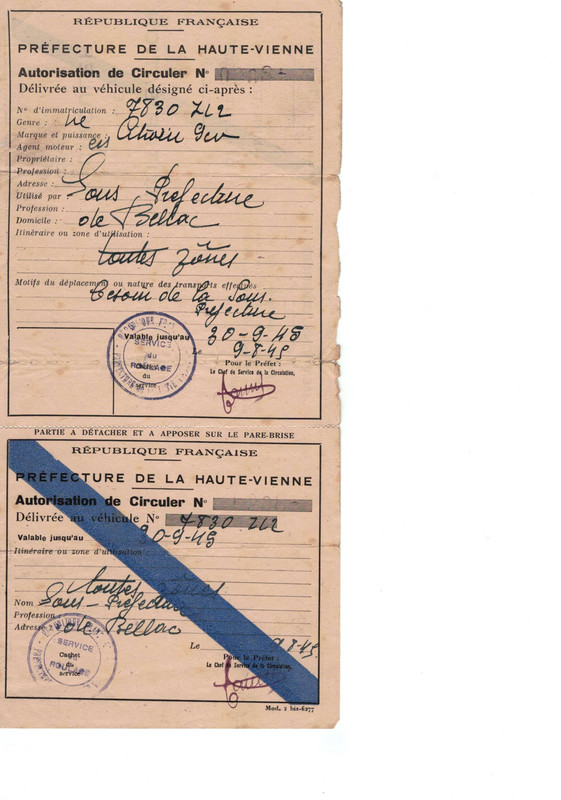 RÉPUBLIQUE FRANÇAISE
PRÉFECTURE DE LA HAUTE-VIENNE
Autorisation de Circuler N°
Délivrée au véhicule désigné ci-après :
N° d'immatriculation : 7830 ZL2
Genre :
Marque et puissance :
Agent moteur :
Propriétaire :
Profession :
Adresse :
Utilisé par Sous Préfecture
Profession :
Domicile : de Bellac
Itinéraire ou zone d'utilisation :
toutes zônes
Motifs du déplacement ou nature des transports effectués
besoin de la Sous-
Préfecture
Valable jusqu'au 30-9-45
Le 9-8-45
Pour le Préfet :
Le Chef du Service de la Circulation,
SERVICE
du
ROULAGE
du
service
PARTIE A DÉTACHER ET A APPOSER SUR LE PARE-BRISE
RÉPUBLIQUE FRANÇAISE
PRÉFECTURE DE LA HAUTE-VIENNE
Autorisation de Circuler N°
Délivrée au véhicule N° 7830 ZL2
Valable jusqu'au 30-9-45
Itinéraire ou zone d'utilisation :
toutes zônes
Nom Sous-Préfecture
Profession
Adresse : de Bellac
Le 9-8-45.
Pour le Préfet :
Le Chef du Service de la Circulation,
SERVICE
Cachet
du
ROULAGE
service
Mod. 2 bis-6277